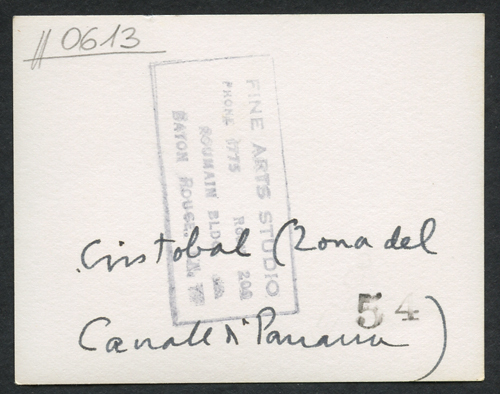 //0613
FINE ARTS STUDIO
PHONE 3775 ROOM 206
ROUMAIN BLDG.
BATON ROUGE,
Cristobal (Zona del
Canale di Panama)
54